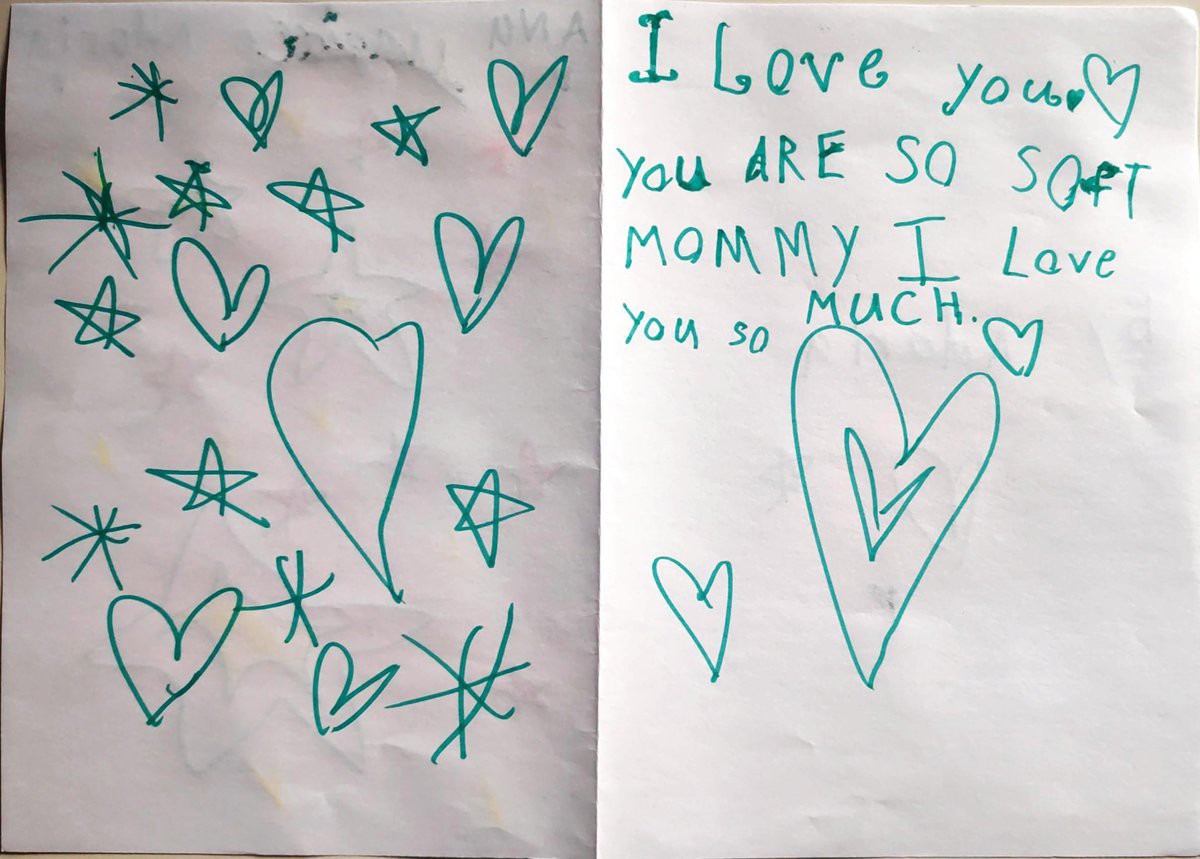 I Love you.
you ARE SO SOFT
MOMMY I Love
you so MUCH.